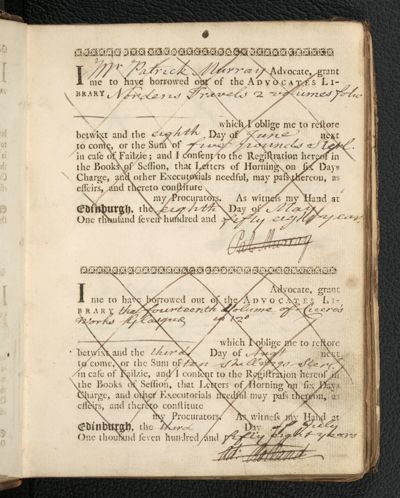 I Mr Patrick Murray Advocate, grant
me to have borrowed out of the ADVOCATES LI-
BRARY Nordens Travels 2 volumes folio
which I oblige me to reſtore
betwixt and the eighth Day of June next
to come, or the Sum of five pounds Sterl.
in caſe of Failzie; and I conſent to the Regiſtration hereof in
the Books of Seſſion, that Letters of Horning on ſix Days
Charge, and other Executorials needful, may paſs thereon, as
effeirs, and thereto conſtitute
my Procurators. As witneſs my Hand at
Edinburgh, the eighth Day of May
One thouſand ſeven hundred and fifty eight years
Pat: Murray
I Advocate, grant
me to have borrowed out of the ADVOCATES LI-
BRARY the fourteenth Volume of Cicero's
Works in 12o
which I oblige me to reſtore
betwixt and the third Day of Augt next
to come, or the Sum of ten Shillings Sterl.
in caſe of Failzie, and I conſent to the Regiſtration hereof in
the Books of Seſſion, that Letters of Horning on ſix Days
Charge, and other Executorials needful may paſs thereon, as
effeirs, and thereto conſtitute
my Procurators. As witneſs my Hand at
Edinburgh, the third Day of July
One thouſand ſeven hundred and fifty eight years